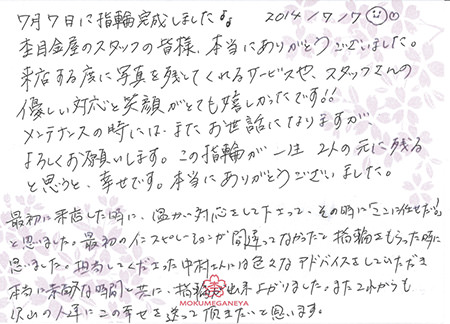 7月7日に指輪完成しました♪
2014/7/7
杢目金屋のスタッフの皆様、本当にありがとうございました。
来店する度に写真を残してくれるサービスや、スタッフさんの
優しい対応と笑顔がとても嬉しかったです!!
メンテナンスの時には、またお世話になりますが、
よろしくお願いします。この指輪が一生2人の元に残る
と思うと、幸せです。本当にありがとうございました。
最初に来店した時に、温かい対応をして下さって、その時に「ここに任せたい!」
と思いました。最初のインスピレーションが間違ってなかったと指輪をもらった時に
思いました。担当してくださった中村さんには色々なアドバイスをしていただき
本当に素敵な時間と共に、指輪が出来上がりました。またこれからも
沢山の人達にこの幸せを送って頂きたいと思います。
MOKUMEGANEYA